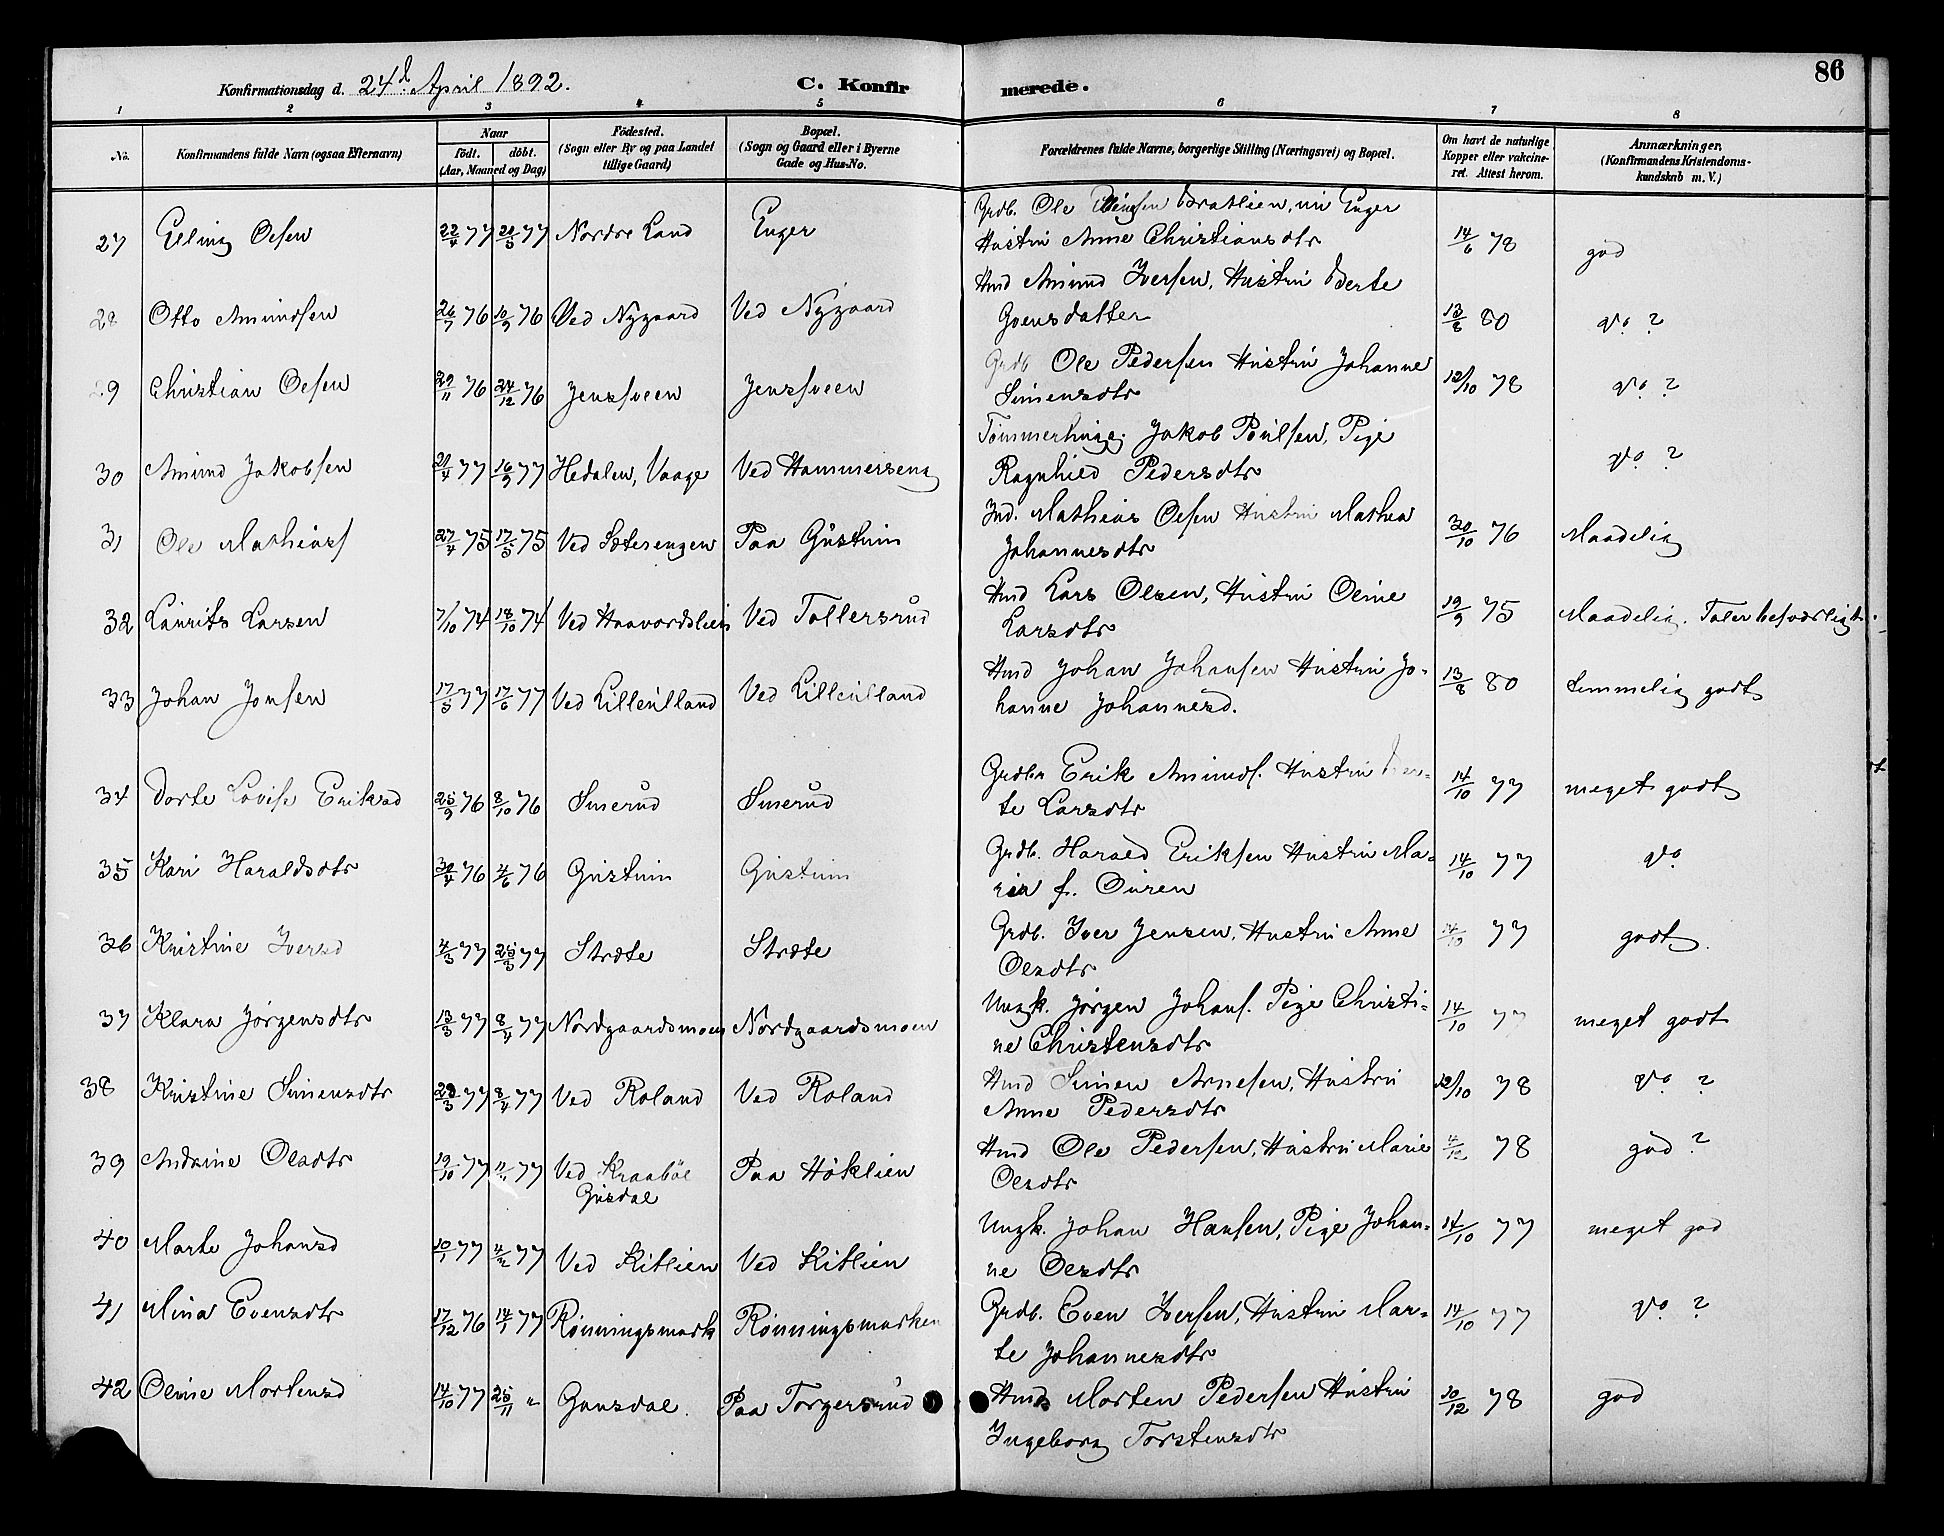 86
Konfirmationsdag d. 24d. April 1892. C. Konfirmerede.
1 2 3 4 5 6 7 8
No. Konfirmandens fulde Navn (ogsaa Efternavn) Naar födt. döbt. (Aar, Maaned og Dag) Födested. (Sogn eller By og paa Landet tillige Gaard) Bopæl. (Sogn og Gaard eller i Byerne Gade og Hus-No. Forældrenes fulde Navne, borgerlige Stilling (Næringsvei) og Bopæl. Om havt de naturlige Kopper eller vakcineret. Attest herom. Anmærkninger. (Konfirmandens Kristendomskundskab m. V.)
27 Elling Olsen 22/4 77 20/5 77 Nordre Land Enger Grdb. Ole Ellingsen Bratlien, nu Enger 14/6 78 god
Hustru Anne Christiansdtr
28 Otto Amundsen 26/7 76 10/9 76 Ved Nygaard Ved Nygaard Hmd Amund Iversen, Hustru Berte 13/8 80 do ?
Goensdatter
29 Christian Olsen 29/11 76 24/12 76 Jenssveen Jenssveen Grdb Ole Pedersen Hustru Johanne 12/10 78 do ?
Simensdtr
30 Amund Jakobsen 21/4 77 16/9 77 Hedalen, Vaage Ved Hammerseng Tømmerhugg. Jakob Poulsen, Pige do ?
Ragnhild Pedersdtr
31 Ole Mathias 27/4 75 17/5 75 Ved Sæterengen Paa Gustum Ind. Mathias Olsen Hustru Mathea 30/10 76 Maadelig
Johannesdtr
32 Laurits Larsen 7/10 74 18/10 74 Ved Haavordslien Ved Tollersrud Hmd Lars Olsen, Hustru Oline 19/9 75 Maadelig. Taler besværligt.
Larsdtr
33 Johan Jonsen 17/5 77 17/6 77 Ved Lilleulland Ved Lilleulland Hmd Johan Johansen Hustru Jo- 13/8 80 temmelig godt
hanne Johannesd.
34 Dorte Lovise Eriksd 25/9 76 8/10 76 Smerud Smerud Grdbr Erik Amunds. Hustru Ber- 14/10 77 meget godt
te Larsdtr
35 Kari Haraldsdtr 30/4 76 4/6 76 Gustum Gustum Grdb. Harald Eriksen Hustru Ma- 14/10 77 do
ria f. Ouren
36 Kristine Iversd 4/3 77 25/3 77 Stræte Stræte Grdb. Iver Jensen, Hustru Anne 14/10 77 godt
Olsdtr
37 Klara Jørgensdtr 13/3 77 8/4 77 Nordgaardsmoen Nordgaardsmoen Ungk. Jørgen Johans. Pige Christi- 14/10 77 meget godt
ne Christensdtr
38 Kristine Simensdtr 23/3 77 8/4 77 Ved Roland Ved Roland Hmd Simen Arnesen, Hustru 12/10 78 do ?
Anne Pedersdtr
39 Andrine Olsdtr 19/10 77 77 Ved Kraabøl Paa Høklien Hmd Ole Pedersen, Hustru Marie 4/12 78 god ?
Gusdal Olsdtr
40 Marte Johansd 10/1 77 4/2 77 Ved Kitlien Ved Kitlien Ungk. Johan Hansen, Pige Johan- 14/10 77 meget god
ne Olsdtr
41 Mina Evensdtr 17/12 76 14/1 77 Rønningsmark Rønningsmarken Grdb. Even Iversen, Hustru Mar- 14/10 77 do ?
te Johannesdtr
42 Oline Mortensd 14/10 77 25/11 " Gausdal. Paa Torgersrud Hmd Morten Pedersen Hustru 10/12 78 god
Ingeborg Torstensdtr